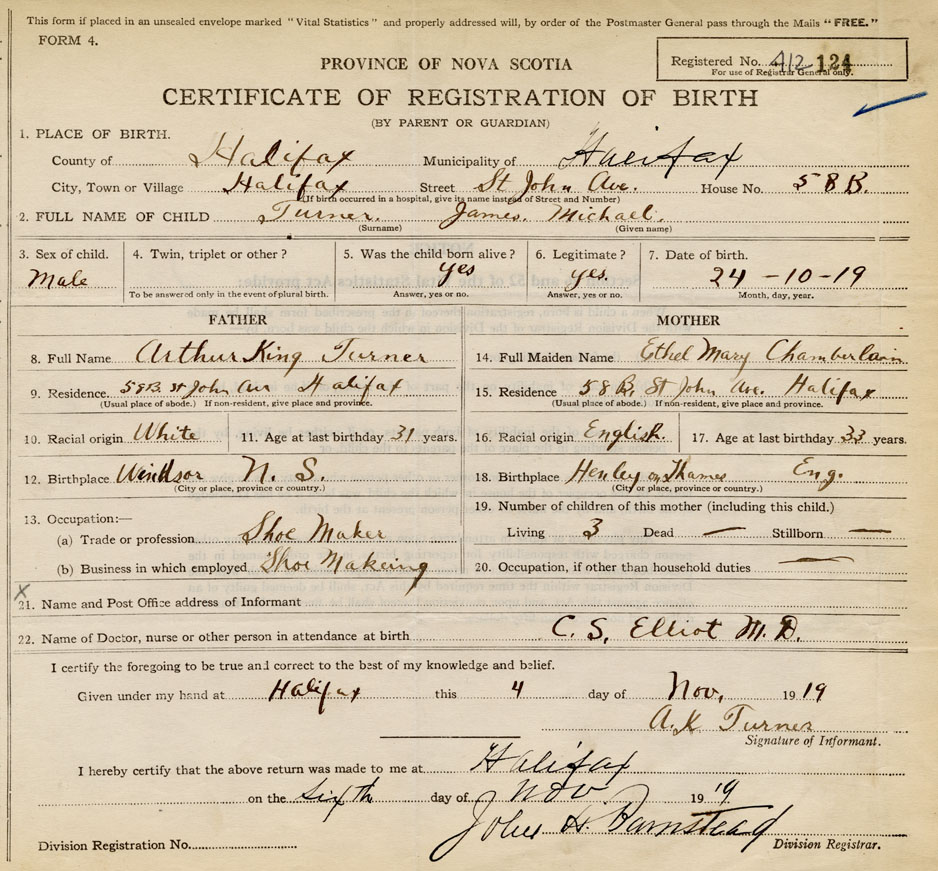 This form if placed in an unsealed envelope marked "Vital Statistics" and properly addressed will, by order of the Postmaster General pass through the Mails "FREE."
FORM 4.
Registered No. 412 124
For use of Registrar General only.
PROVINCE OF NOVA SCOTIA
CERTIFICATE OF REGISTRATION OF BIRTH
(BY PARENT OR GUARDIAN)
1. PLACE OF BIRTH.
County of Halifax Municipality of Halifax
City, Town or Village Halifax Street St John Ave. House No. 58B.
(If birth occurred in a hospital, give its name instead of Street and Number)
2. FULL NAME OF CHILD Turner. James. Michael.
(Surname) (Given name)
3. Sex of child. 4. Twin, triplet or other? 5. Was the child born alive? 6. Legitimate? 7. Date of birth.
Male yes yes. 24-10-19
To be answered only in the event of plural birth. Answer, yes or no. Answer, yes or no. Month, day, year.
FATHER MOTHER
8. Full Name Arthur King Turner 14. Full Maiden Name Ethel Mary Chamberlain
9. Residence. 58B. St John Av Halifax 15. Residence 58 B. St John Ave. Halifax
(Usual place of abode.) If non-resident, give place and province. (Usual place of abode.) If non-resident, give place and province.
10. Racial origin White 11. Age at last birthday 31 years. 16. Racial origin English. 17. Age at last birthday 33 years.
12. Birthplace Windsor N. S. 18. Birthplace Henley on Thames Eng.
(City or place, province or country.) (City or place, province or country.)
13. Occupation:— 19. Number of children of this mother (including this child.)
(a) Trade or profession Shoe Maker Living 3 Dead — Stillborn —
(b) Business in which employed Shoe Makeing 20. Occupation, if other than household duties —
X
21. Name and Post Office address of Informant
22. Name of Doctor, nurse or other person in attendance at birth C. S. Elliot M. D.
I certify the foregoing to be true and correct to the best of my knowledge and belief.
Given under my hand at Halifax this 4 day of Nov. 1919
A. K Turner
Signature of Informant.
I hereby certify that the above return was made to me at Halifax
on the Sixth day of Nov 1919
John H. Barnstead
Division Registration No. Division Registrar.